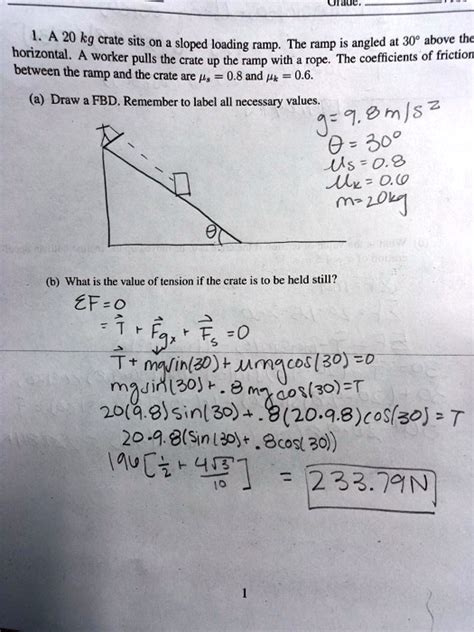 Grade:
1. A 20 kg crate sits on a sloped loading ramp. The ramp is angled at 30° above the
horizontal. A worker pulls the crate up the ramp with a rope. The coefficients of friction
between the ramp and the crate are μs = 0.8 and μk = 0.6.
(a) Draw a FBD. Remember to label all necessary values.
g = 9.8 m/s²
θ = 30°
μs = 0.8
μk = 0.6
m = 20kg
θ
(b) What is the value of tension if the crate is to be held still?
ΣF = 0
= T + Fgx + Fs = 0
T + mgsin(30) + μmgcos(30) = 0
mgsin(30) + .8 mg cos(30) = T
20(9.8)sin(30) + .8(20·9.8)cos(30) = T
20·9.8(sin(30) + .8cos(30))
196[1/2 + 4√3/10] = 233.79N
1